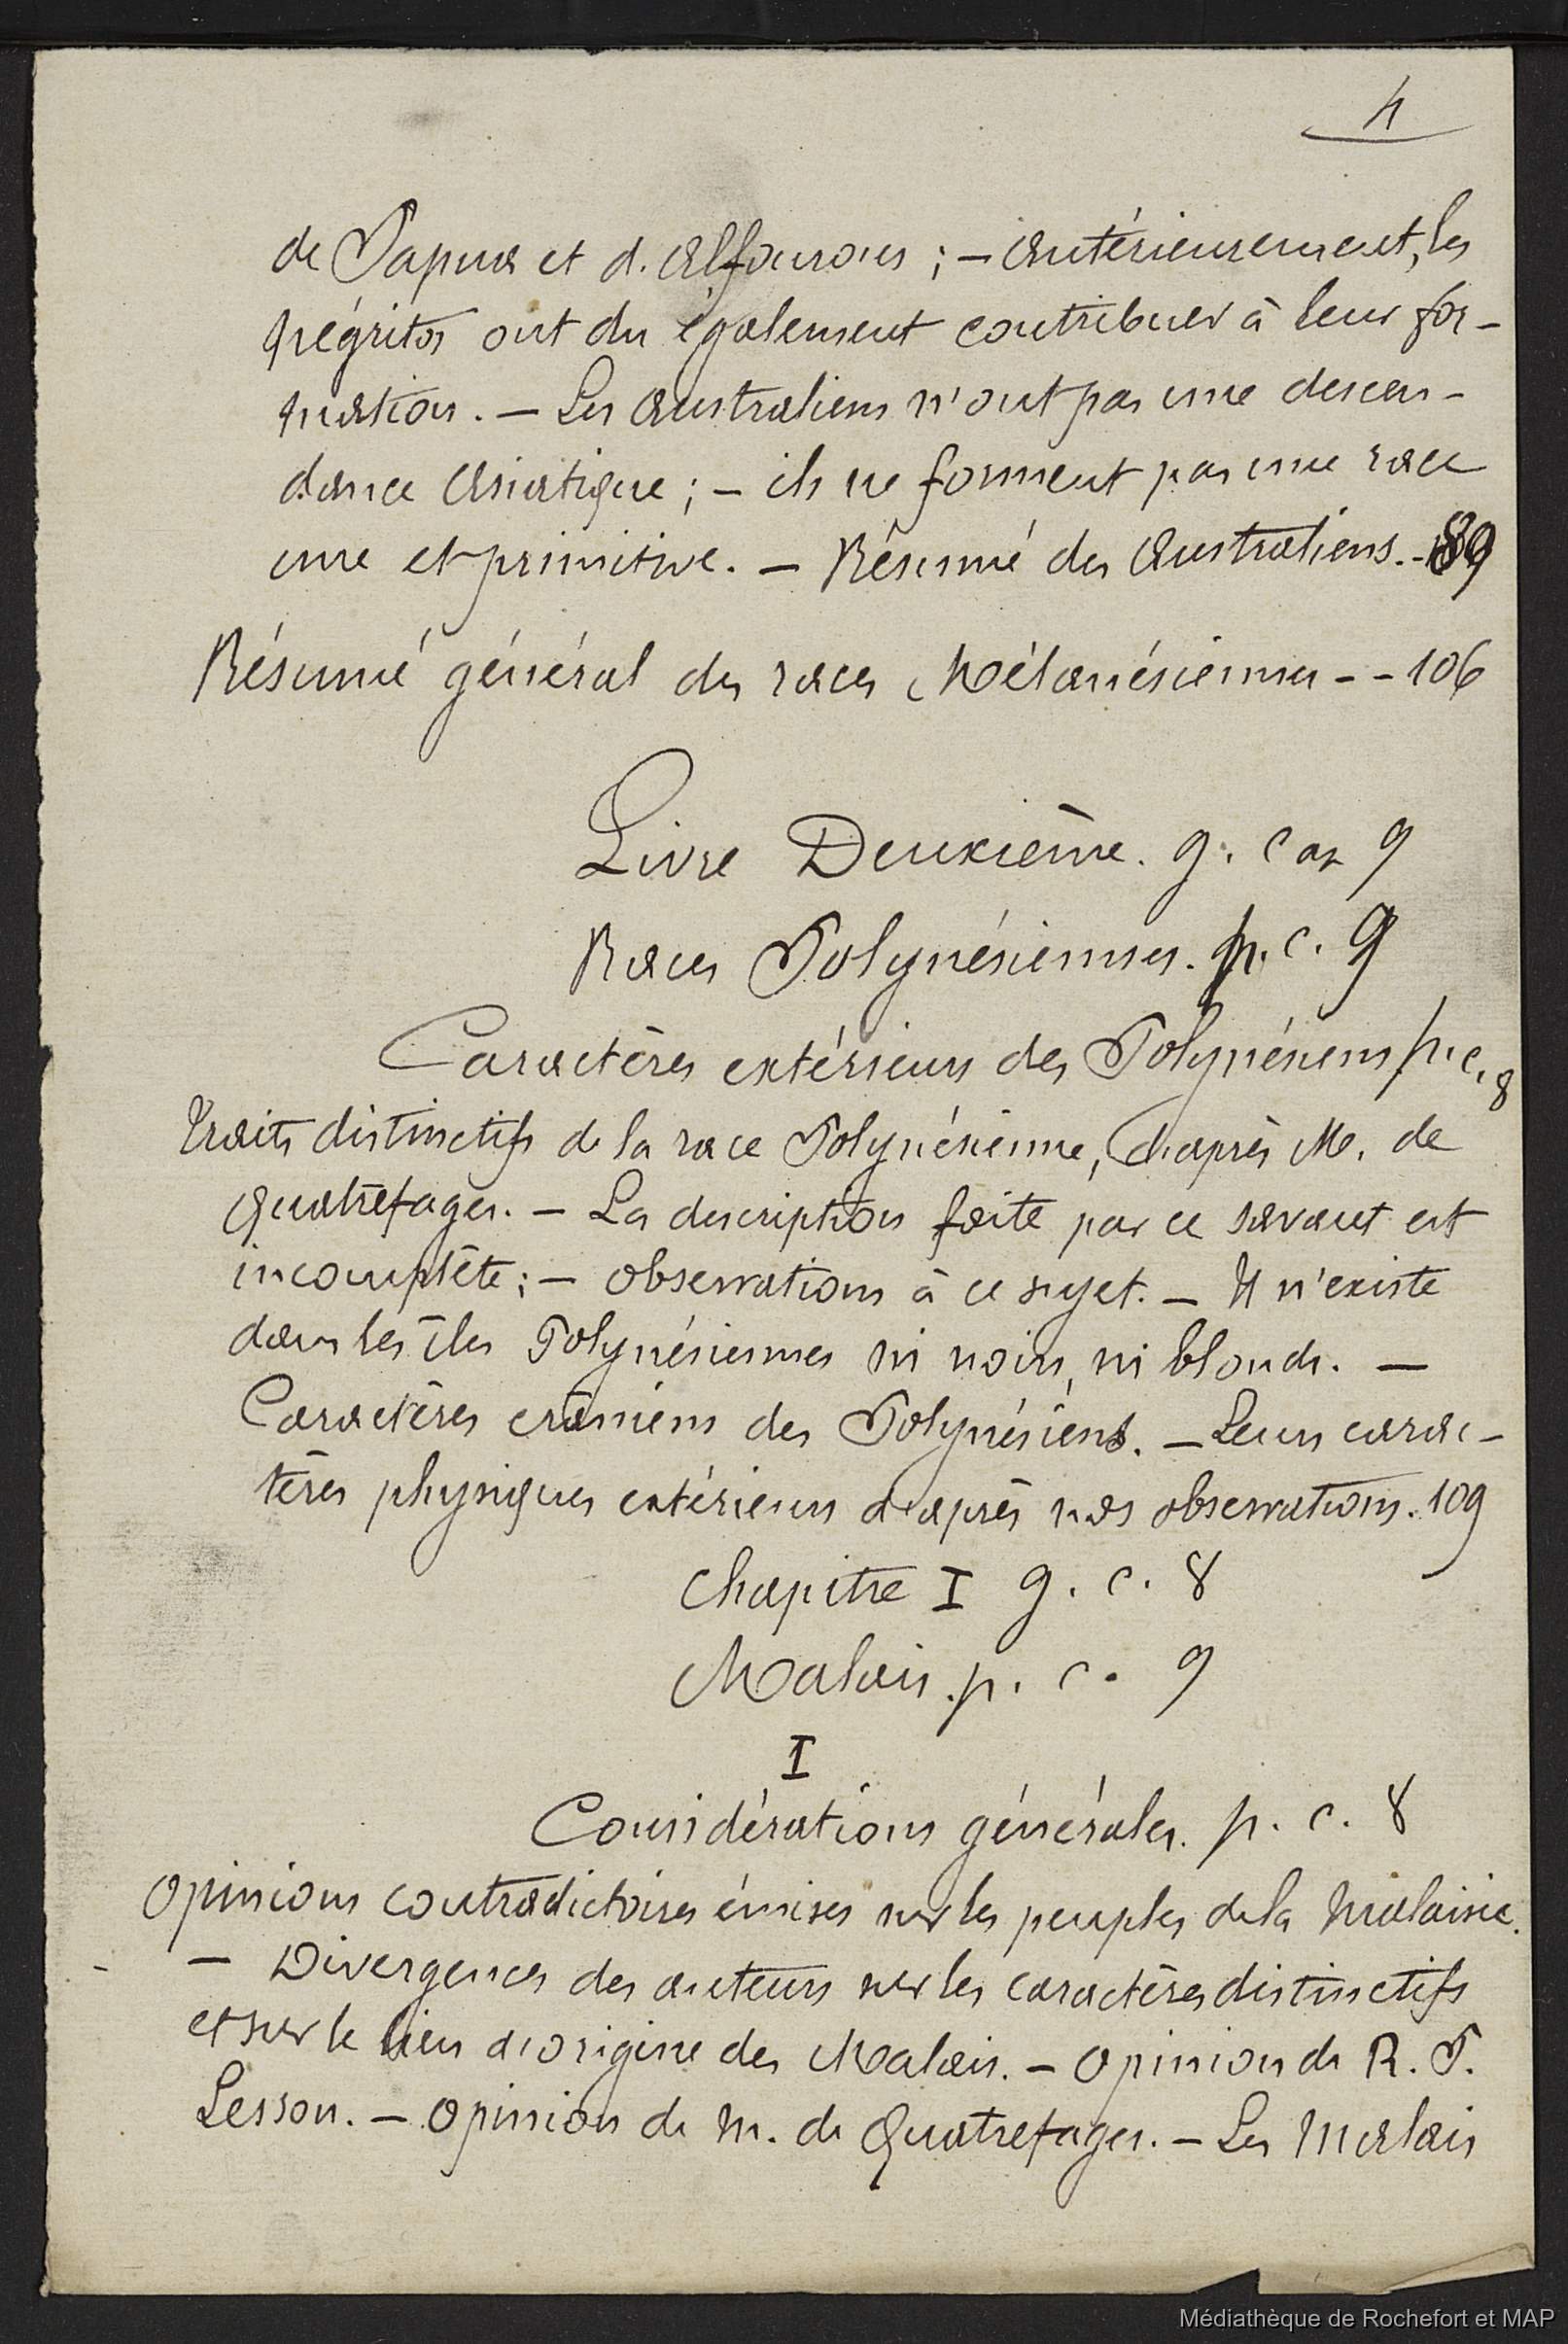 4
de Papua et d'Alfourous ; — Antérieurement, les
Négritos ont du également contribuer à leur for-
mation. — Les Australiens n'ont pas une descen-
dance Asiatique ; — ils ne forment pas une race
une et primitive. — Résumé des Australiens. - 89
Résumé général des races Mélanésiennes - - 106
Livre Deuxième. g. c 9
Races Polynésiennes. p. c. 9
Caractères extérieurs des Polynésiens p. c. 8
Traits distinctifs de la race Polynésienne, d'après M. de
Quatrefages. — La description faite par ce savant est
incomplète ; — observations à ce sujet. — Il n'existe
dans les îles Polynésiennes ni noirs, ni blonds. —
Caractères crâniens des Polynésiens. — Leurs carac-
tères physiques extérieurs d'après nos observations. 109
Chapitre I g. c. 8
Malais. p. c. 9
I
Considérations générales. p. c. 8
Opinions contradictoires émises sur les peuples de la Malaisie.
— Divergences des auteurs sur les caractères distinctifs
et sur le lieu d'origine des Malais. — Opinion de R. P.
Lesson. — Opinion de M. de Quatrefages. — Les Malais
Médiathèque de Rochefort et MAP